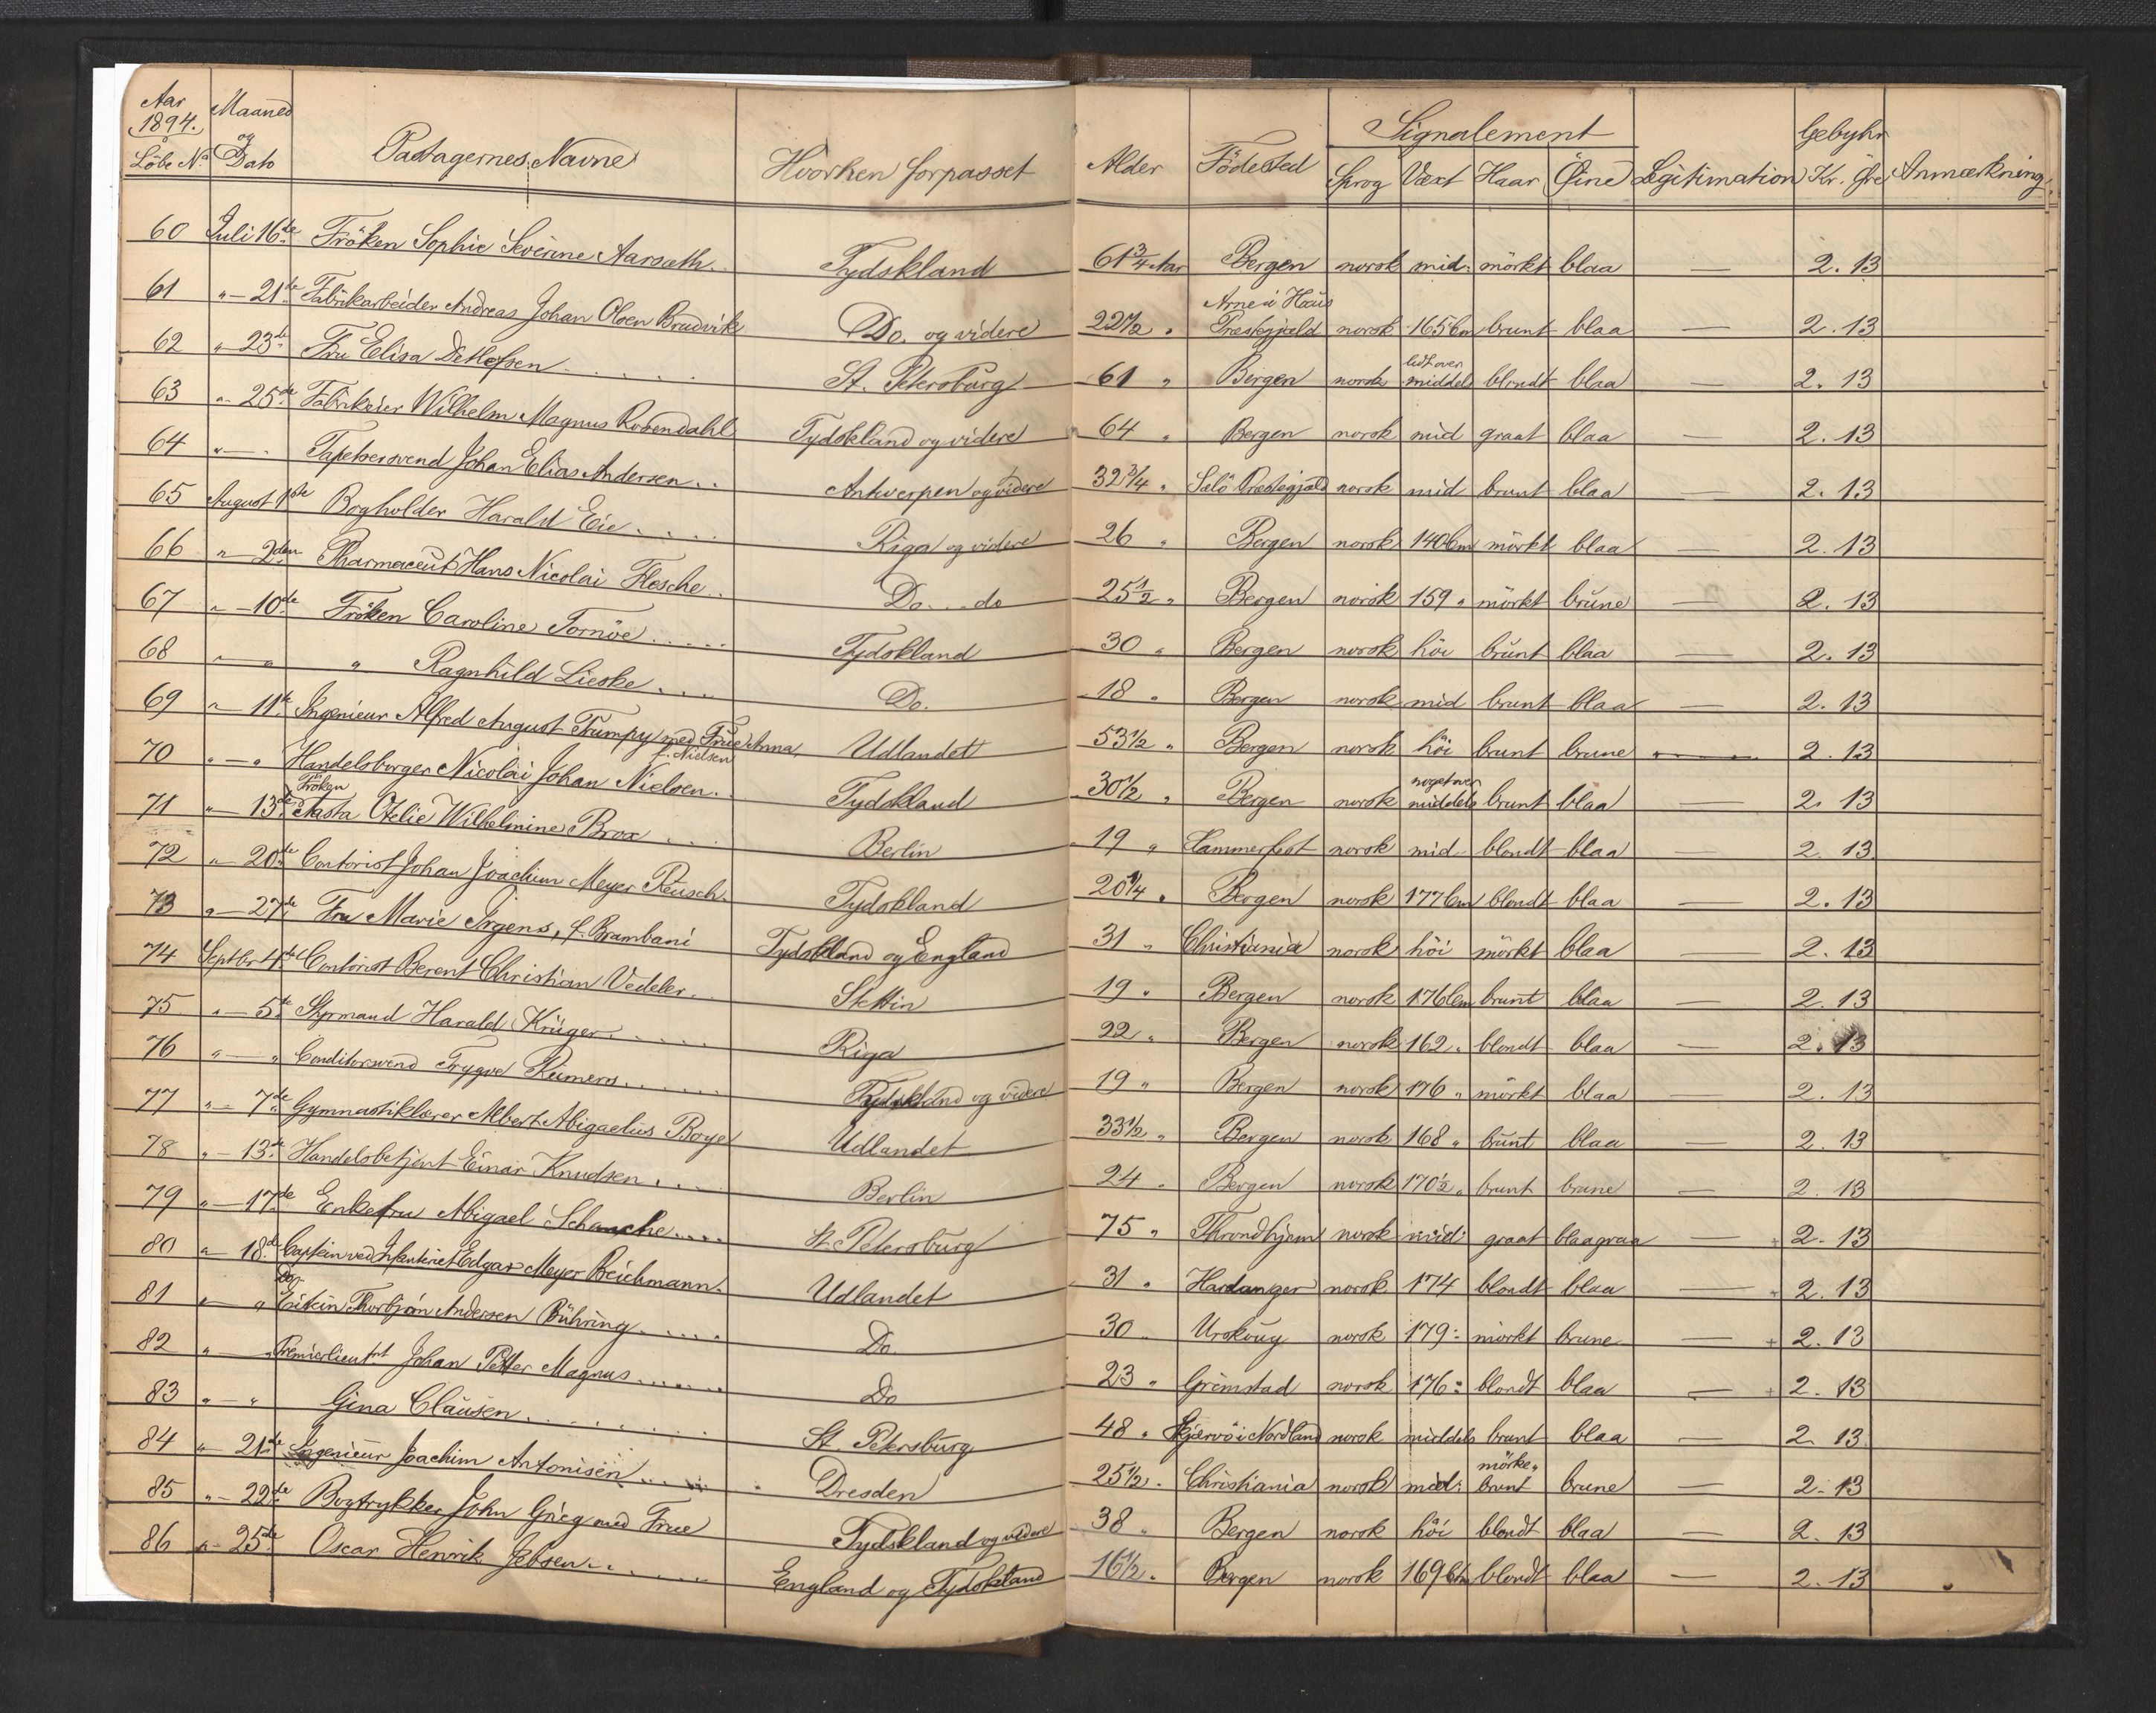 Aar 1894. Løbe No. Maaned og Dato Passagernes Navne Hvorhen forpasset Alder Födested Signalement Sprog Væxt Haar Øine Legitimation Gebyhr Kr. Øre Anmærkning
60 Juli 16de Fröken Sophie Severine Aarsæth.. Tydskland 61 3/4 Aar Bergen norsk mid: mörkt blaa — 2. 13
61 " — 21de Fabrikarbeider Andreas Johan Olsen Bradvik Do. og videre 22 1/2 " Arne i Haus Præstegjæld norsk 165 Cm brunt blaa — 2. 13
62 " — 23de Fru Elisa Detlefsen . . . . . . St. Petersburg 61 " Bergen norsk lidt over middels blondt blaa — 2. 13
63 " - 25de Fabrikeier Wilhelm Magnus Rosendahl Tydskland og videre 64 " Bergen norsk mid graat blaa — 2. 13
64 " — " Tapetsersvend Johan Elias Andersen . . Antwerpen og videre 32 3/4 " Præstegjæld norsk mid brunt blaa — 2. 13
65 August 1ste Bogholder Harald Eie . . . . . Riga og videre 26 " Bergen norsk 140 Cm mörkt blaa — 2. 13
66 " — 2den Pharmaceut Hans Nicolai Flesche . . Do. . . do 25 1/2 " Bergen norsk 159 " mörkt brune — 2. 13
67 " — 10de Fröken Caroline Tornöe . . . . . Tydskland 30 " Bergen norsk höi brunt blaa — 2. 13
68 " " " Ragnhild Lieske . . . . Do. 18 " Bergen norsk mid brunt blaa — 2. 13
69 " — 11te Ingenieur Alfred August Trumpy med Frue Anna f. Nielsen Udlandet 53 1/2 " Bergen norsk höi brunt brune — 2. 13
70 " — " Handelsborger Nicolai Johan Nielsen . . Tydskland 30 1/2 " Bergen norsk noget over middels brunt blaa 2. 13
71 " — 13de Fröken Aasta Ofelie Wilhelmine Brox . . . Berlin 19 " Hammerfest norsk mid blondt blaa — 2. 13
72 " — 20de Contorist Johan Joachim Meyer Reusch. Tydskland 20 1/4 " Bergen norsk 177 Cm blondt blaa — 2. 13
73 " — 27de Fru Marie Irgens, f. Brambani Tydskland og England 31 " Christiania norsk höi mörkt blaa — 2. 13
74 Septbr 4de Contorist Berent Christian Vedeler . . Stettin 19 " Bergen norsk 176 Cm brunt blaa — 2. 13
75 " — 5te Styrmand Harald Krüger . . . . . Riga 22 " Bergen norsk 162 " blondt blaa — 2. 13
76 " — " Conditorsvend Trygve Reimers . . . . . Tydskland og videre 19 " Bergen norsk 176 " mörkt blaa — 2. 13
77 " — 7de Gymnastiklærer Albert Abigaelius Boye Udlandet 33 1/2 " Bergen norsk 168 " brunt blaa — 2. 13
78 " — 13de Handelsbetjent Einar Knudsen . . . . Berlin 24 " Bergen norsk 170 1/2 " brunt brune — 2. 13
79 " — 17de Enkefru Abigael Schanche . . . . St. Petersburg 75 " Throndhjem norsk mid: graat blaagraa — 2. 13
80 " — 18de Captein ved Infanteriet Edgar Meyer Beichmann. Udlandet 31 " Hardanger norsk 174 blondt blaa — 2. 13
81 " — " Do. Thorbjørn Andersen Bühring . . . . . Do. 30 " Urskoug norsk 179 : mörkt brune — 2. 13
82 " — " Premierlieutnt Johan Petter Magnus . . . . . . Do 23 " Grimstad norsk 176 : blondt blaa — 2. 13
83 " — " Gina Clausen . . . . . . . . St. Petersburg 48 " Skjærvö i Nordland norsk middels brunt blaa 2. 13
84 " 21de Ingenieur Joachim Antonisen . . . . Dresden 25 1/2 " Christiania norsk mid: mörke " brunt brune — 2. 13
85 " — 22de Bogtrykker John Grieg med Frue Tydskland og videre 38 " Bergen norsk höi blondt blaa — 2. 13
86 " - 25de Oscar Henrik Jebsen . . . . . . England og Tydskland 16 1/2 " Bergen norsk 169 Cm blondt blaa — 2. 13